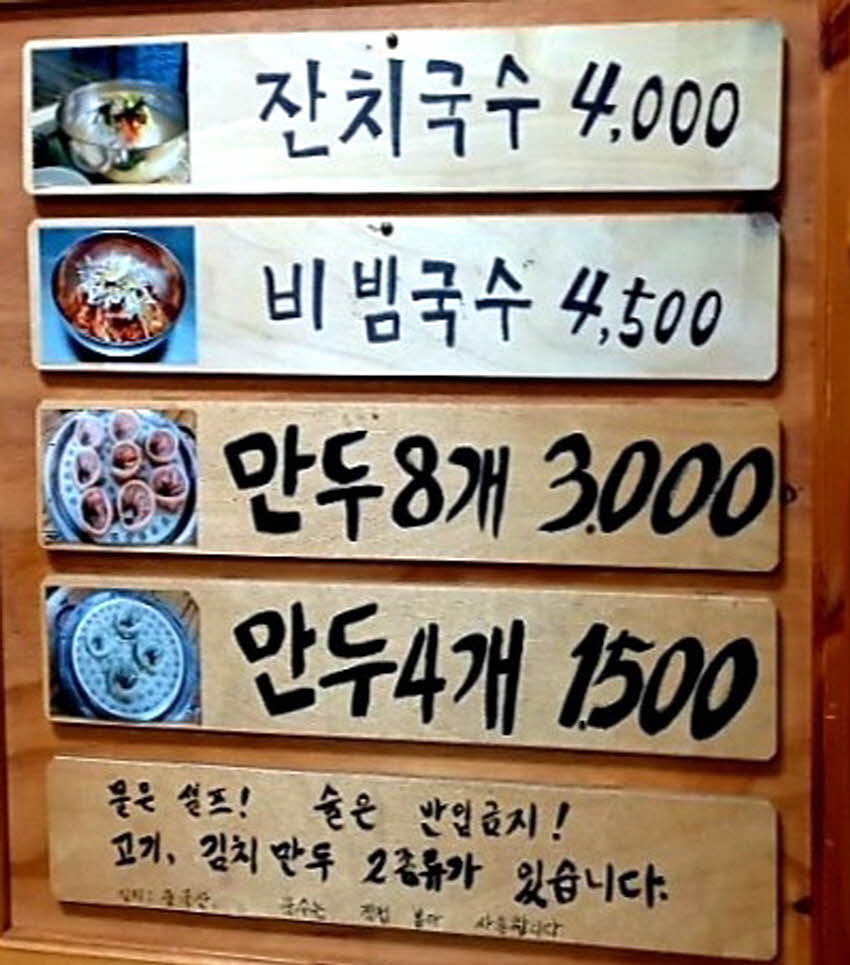 잔치국수 4,000
비빔국수 4,500
만두8개 3.000
만두4개 1.500
물은 셀프! 술은 반입금지!
고기, 김치만두 2종류가 있습니다.
김치: 중국산. 국수는 직접 뽑아 사용합니다